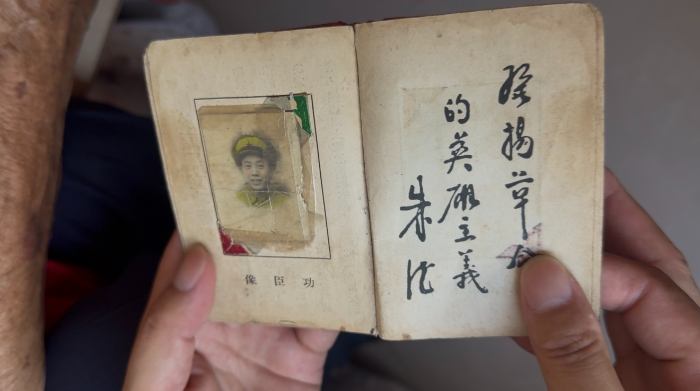 發揚革命
的英雄主義
朱德
功臣像